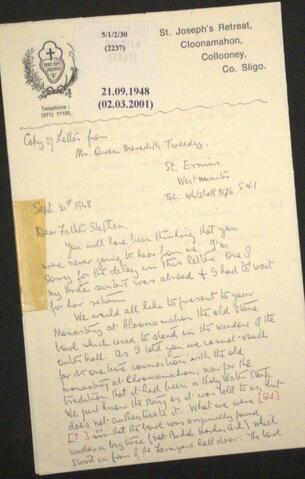 5/1/2/30
(2237)
21.09.1948
(02.03.2001)
St. Joseph's Retreat,
Cloonamahon,
Collooney,
Co. Sligo.
Telephone:
(071) 71105.
Copy of Letter from
Mr. Owen Meredith Tweedy.
St. Ermins,
Westminster
S.W.1
Tel: Whitehall 3176.
Sept. 21st 1948
Dear Father Stephen,
You will have been thinking that you
were never going to hear from me. I'm
sorry for the delay in this letter. One of
my three sisters was abroad & I had to wait
for her return.
We would all like to present to your
Monastery at Cloonamahon the old stone
bowl which used to stand in the window of the
outer hall. As I told you we cannot vouch
for its one time connection with the old
monastery at Cloonamahon; nor for the
tradition that it had been a Holy Water Stoup.
We just know the story as it was told to us, but
does not authenticate it. What we were [told]
[?] is that the bowl was originally found
under a big tree which
stood in front of the farmyard hall door. The bowl